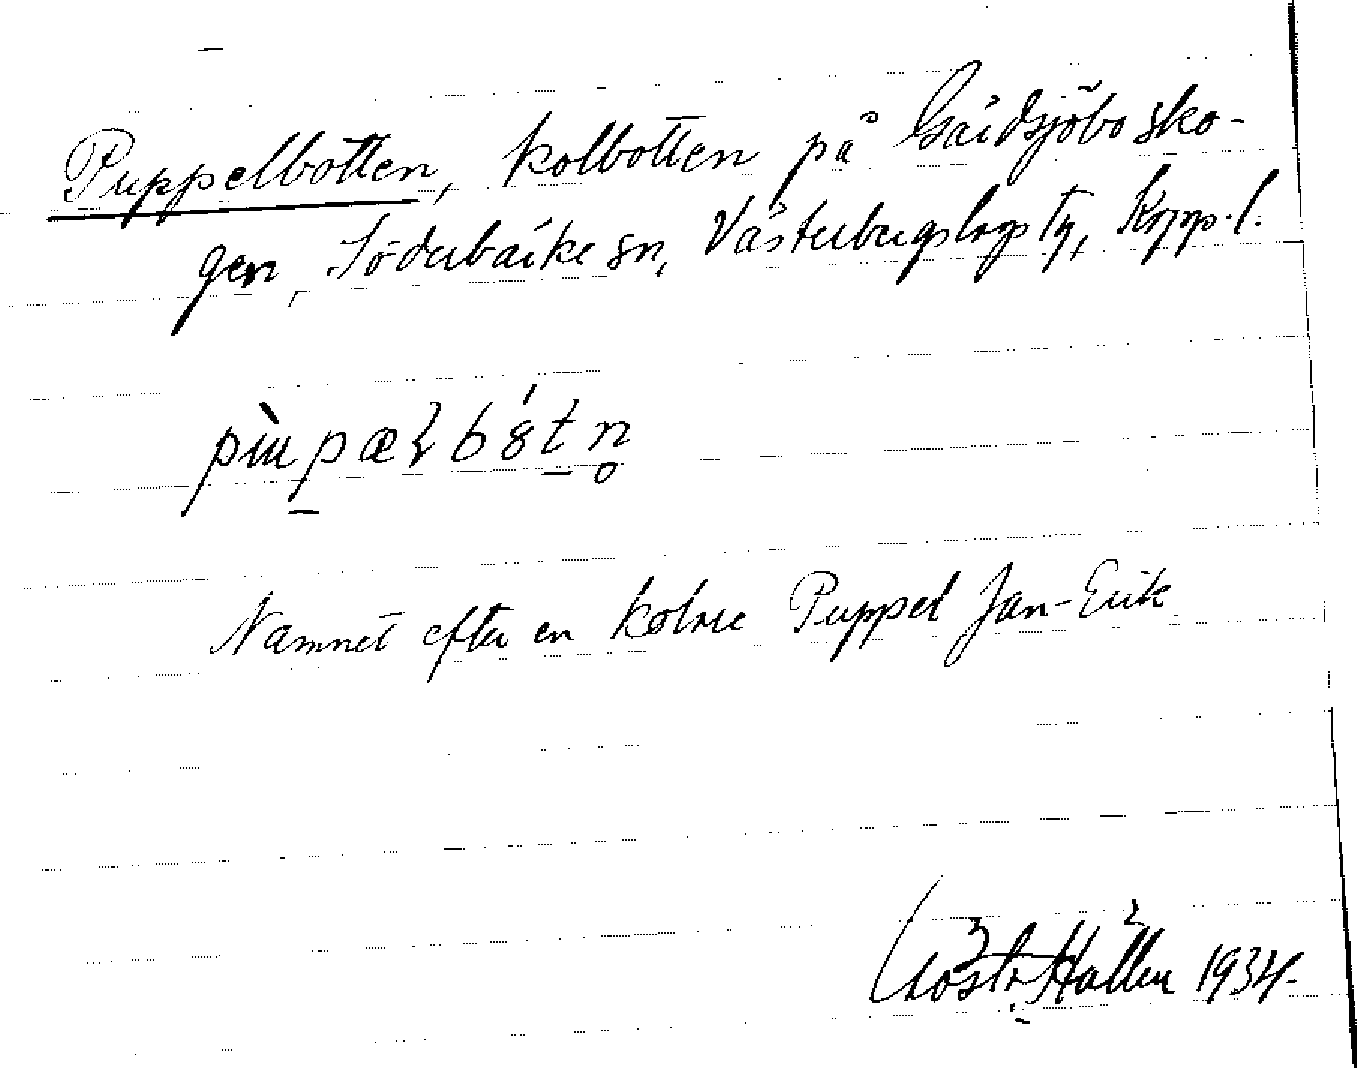 Puppelbotten, kolbotten på Gårdsjöbo sko-
gen, Söderbärke sn, Västerbergslags tg, Kopp. l.
pɯ̀p̠æɭbśt̠n̥
Namnet efter en kolare Puppel Jan-Erik
Gösta Hållen 1934.